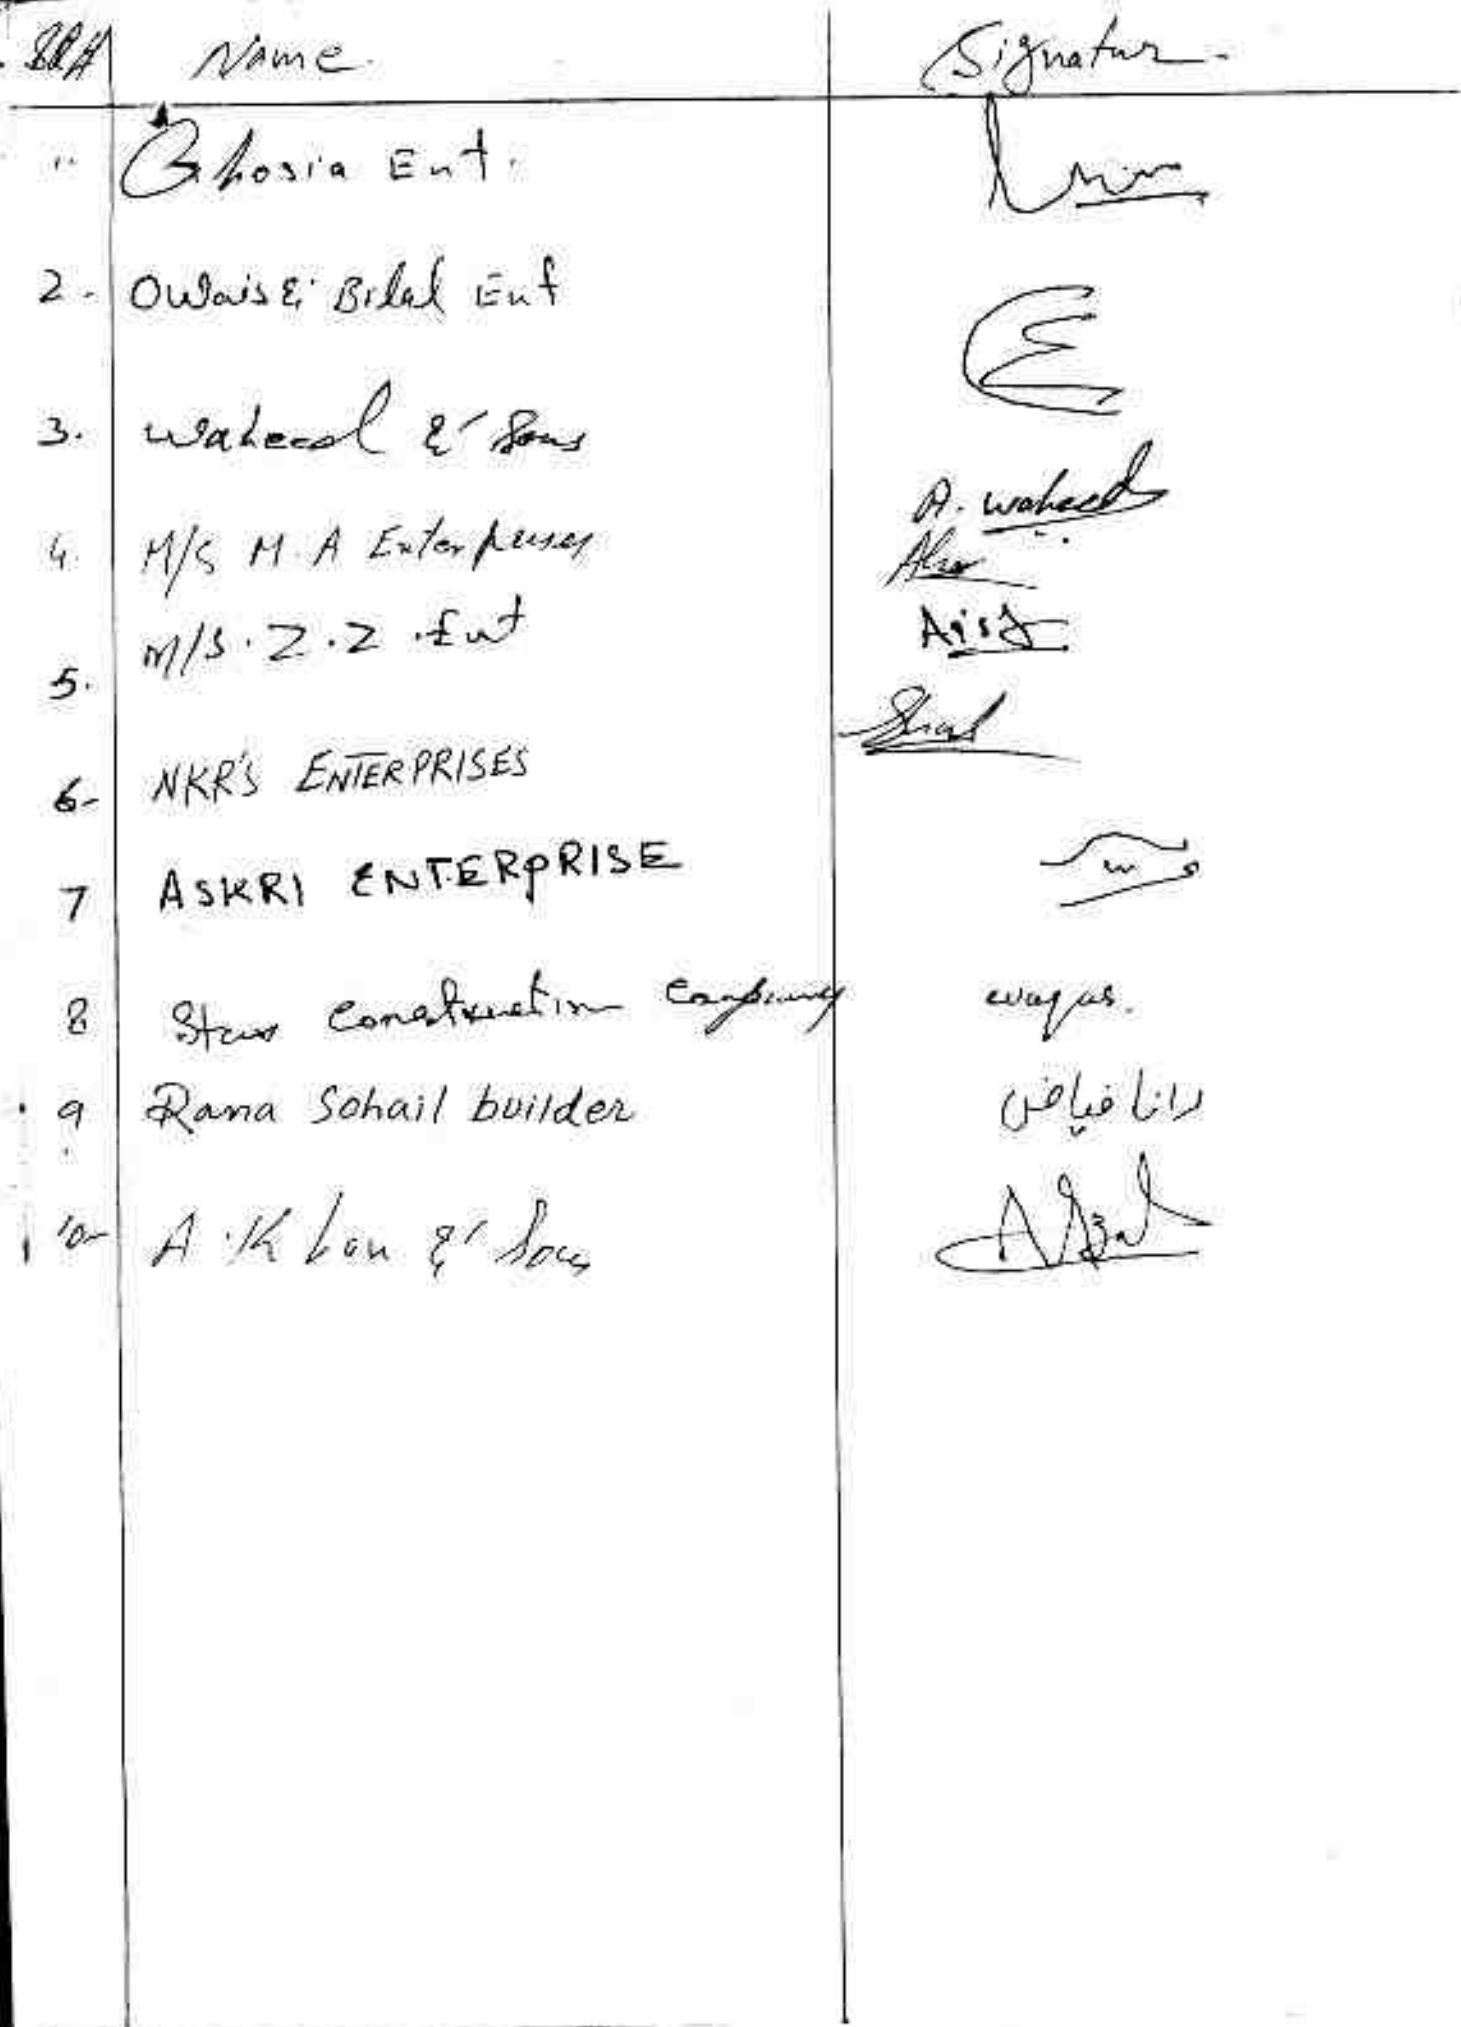 Name. Signatur.
1. Ghosia Ent.
2. Owais & Bilal Ent
3. Waheed & Sons
A. Waheed
4. M/S M.A Enterprises
M/S. Z.Z. Ent
Asif
5.
6- NKR'S ENTERPRISES
7 ASKRI ENTERPRISE
8 Star Construction Company waqas.
9 Rana Sohail builder رانا فیاض
10- A.Khan & Sons Afzal